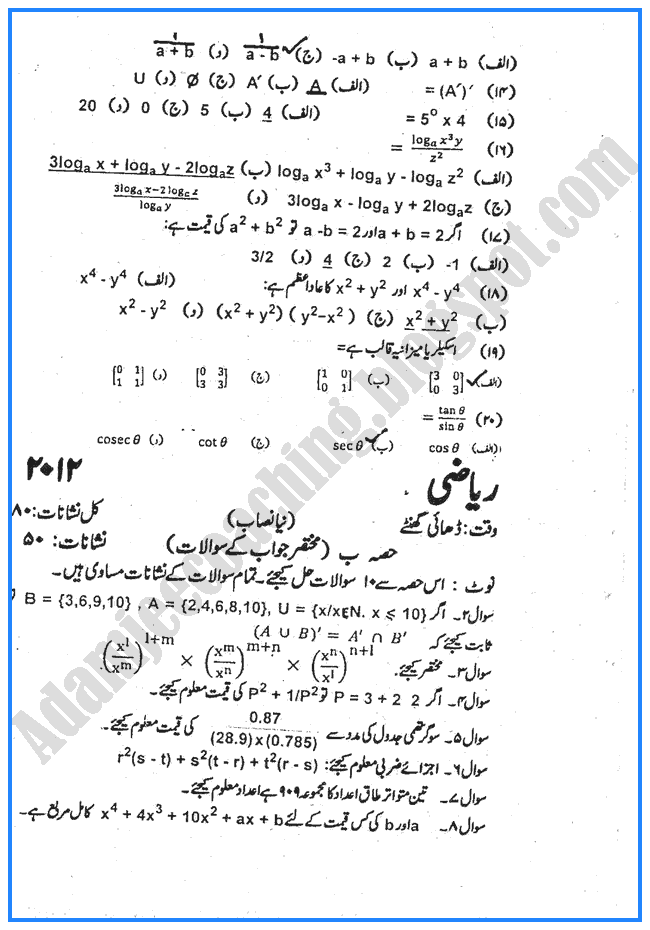 (الف) a + b (ب) -a + b (ج) 1/(a - b) ✓ (د) 1/(a + b)
(۱۴) (A′)′ = (الف) A (ب) A′ (ج) Ø (د) U
(۱۵) 5⁰ x 4 = (الف) 4 (ب) 5 (ج) 0 (د) 20
(۱۶) logₐ x³y / z² =
(الف) logₐ x³ + logₐ y - logₐ z² (ب) 3logₐ x + logₐ y - 2logₐz
(ج) 3logₐ x - logₐ y + 2logₐz (د) (3logₐ x - 2 log_c z) / logₐ y
(۱۷) اگر a + b = 2 اور a -b = 2 تو a² + b² کی قیمت ہے:
(الف) -1 (ب) 2 (ج) 4 (د) 3/2
(۱۸) x⁴ - y⁴ اور x² + y² کا عاد اعظم ہے: (الف) x⁴ - y⁴
(ب) x² + y² (ج) (x² + y²) ( y²–x² ) (د) x² - y²
(۱۹) اسکیلر یا میزانیہ قالب ہے=
(الف) ✓ [3 0; 0 3] (ب) [1 0; 0 1] (ج) [0 3; 3 3] (د) [0 1; 1 1]
(۲۰) tan θ / sin θ =
(الف) cos θ (ب) ✓ sec θ (ج) cot θ (د) cosec θ
ریاضی ۲۰۱۲
وقت: ڈھائی گھنٹے (نیا نصاب) کل نشانات: ۸۰
حصہ ب (مختصر جواب کے سوالات) نشانات: ۵۰
نوٹ : اس حصہ سے ۱۰ سوالات حل کیجئے۔ تمام سوالات کے نشانات مساوی ہیں۔
سوال ۲۔ اگر B = {3,6,9,10} , A = {2,4,6,8,10}, U = {x/xεN. x ⩽ 10}
ثابت کیجئے کہ (A ∪ B)′ = A′ ∩ B′
سوال ۳۔ مختصر کیجئے۔ (xˡ/xᵐ)ˡ⁺ᵐ × (xᵐ/xⁿ)ᵐ⁺ⁿ × (xⁿ/xˡ)ⁿ⁺ˡ
سوال ۴۔ اگر P = 3 + 2 2 تو P² + 1/P² کی قیمت معلوم کیجئے۔
سوال ۵۔ لوگرتھمی جدول کی مدد سے 0.87 / (28.9)x(0.785) کی قیمت معلوم کیجئے۔
سوال ۶۔ اجزائے ضربی معلوم کیجئے: r²(s - t) + s²(t - r) + t²(r - s)
سوال ۷۔ تین متواتر طاق اعداد کا مجموعہ ۹۰۹ ہے اعداد معلوم کیجئے۔
سوال ۸۔ a اور b کی کس قیمت کے لئے x⁴ + 4x³ + 10x² + ax + b کامل مربع ہے۔
Adamjeecoaching.blogspot.com